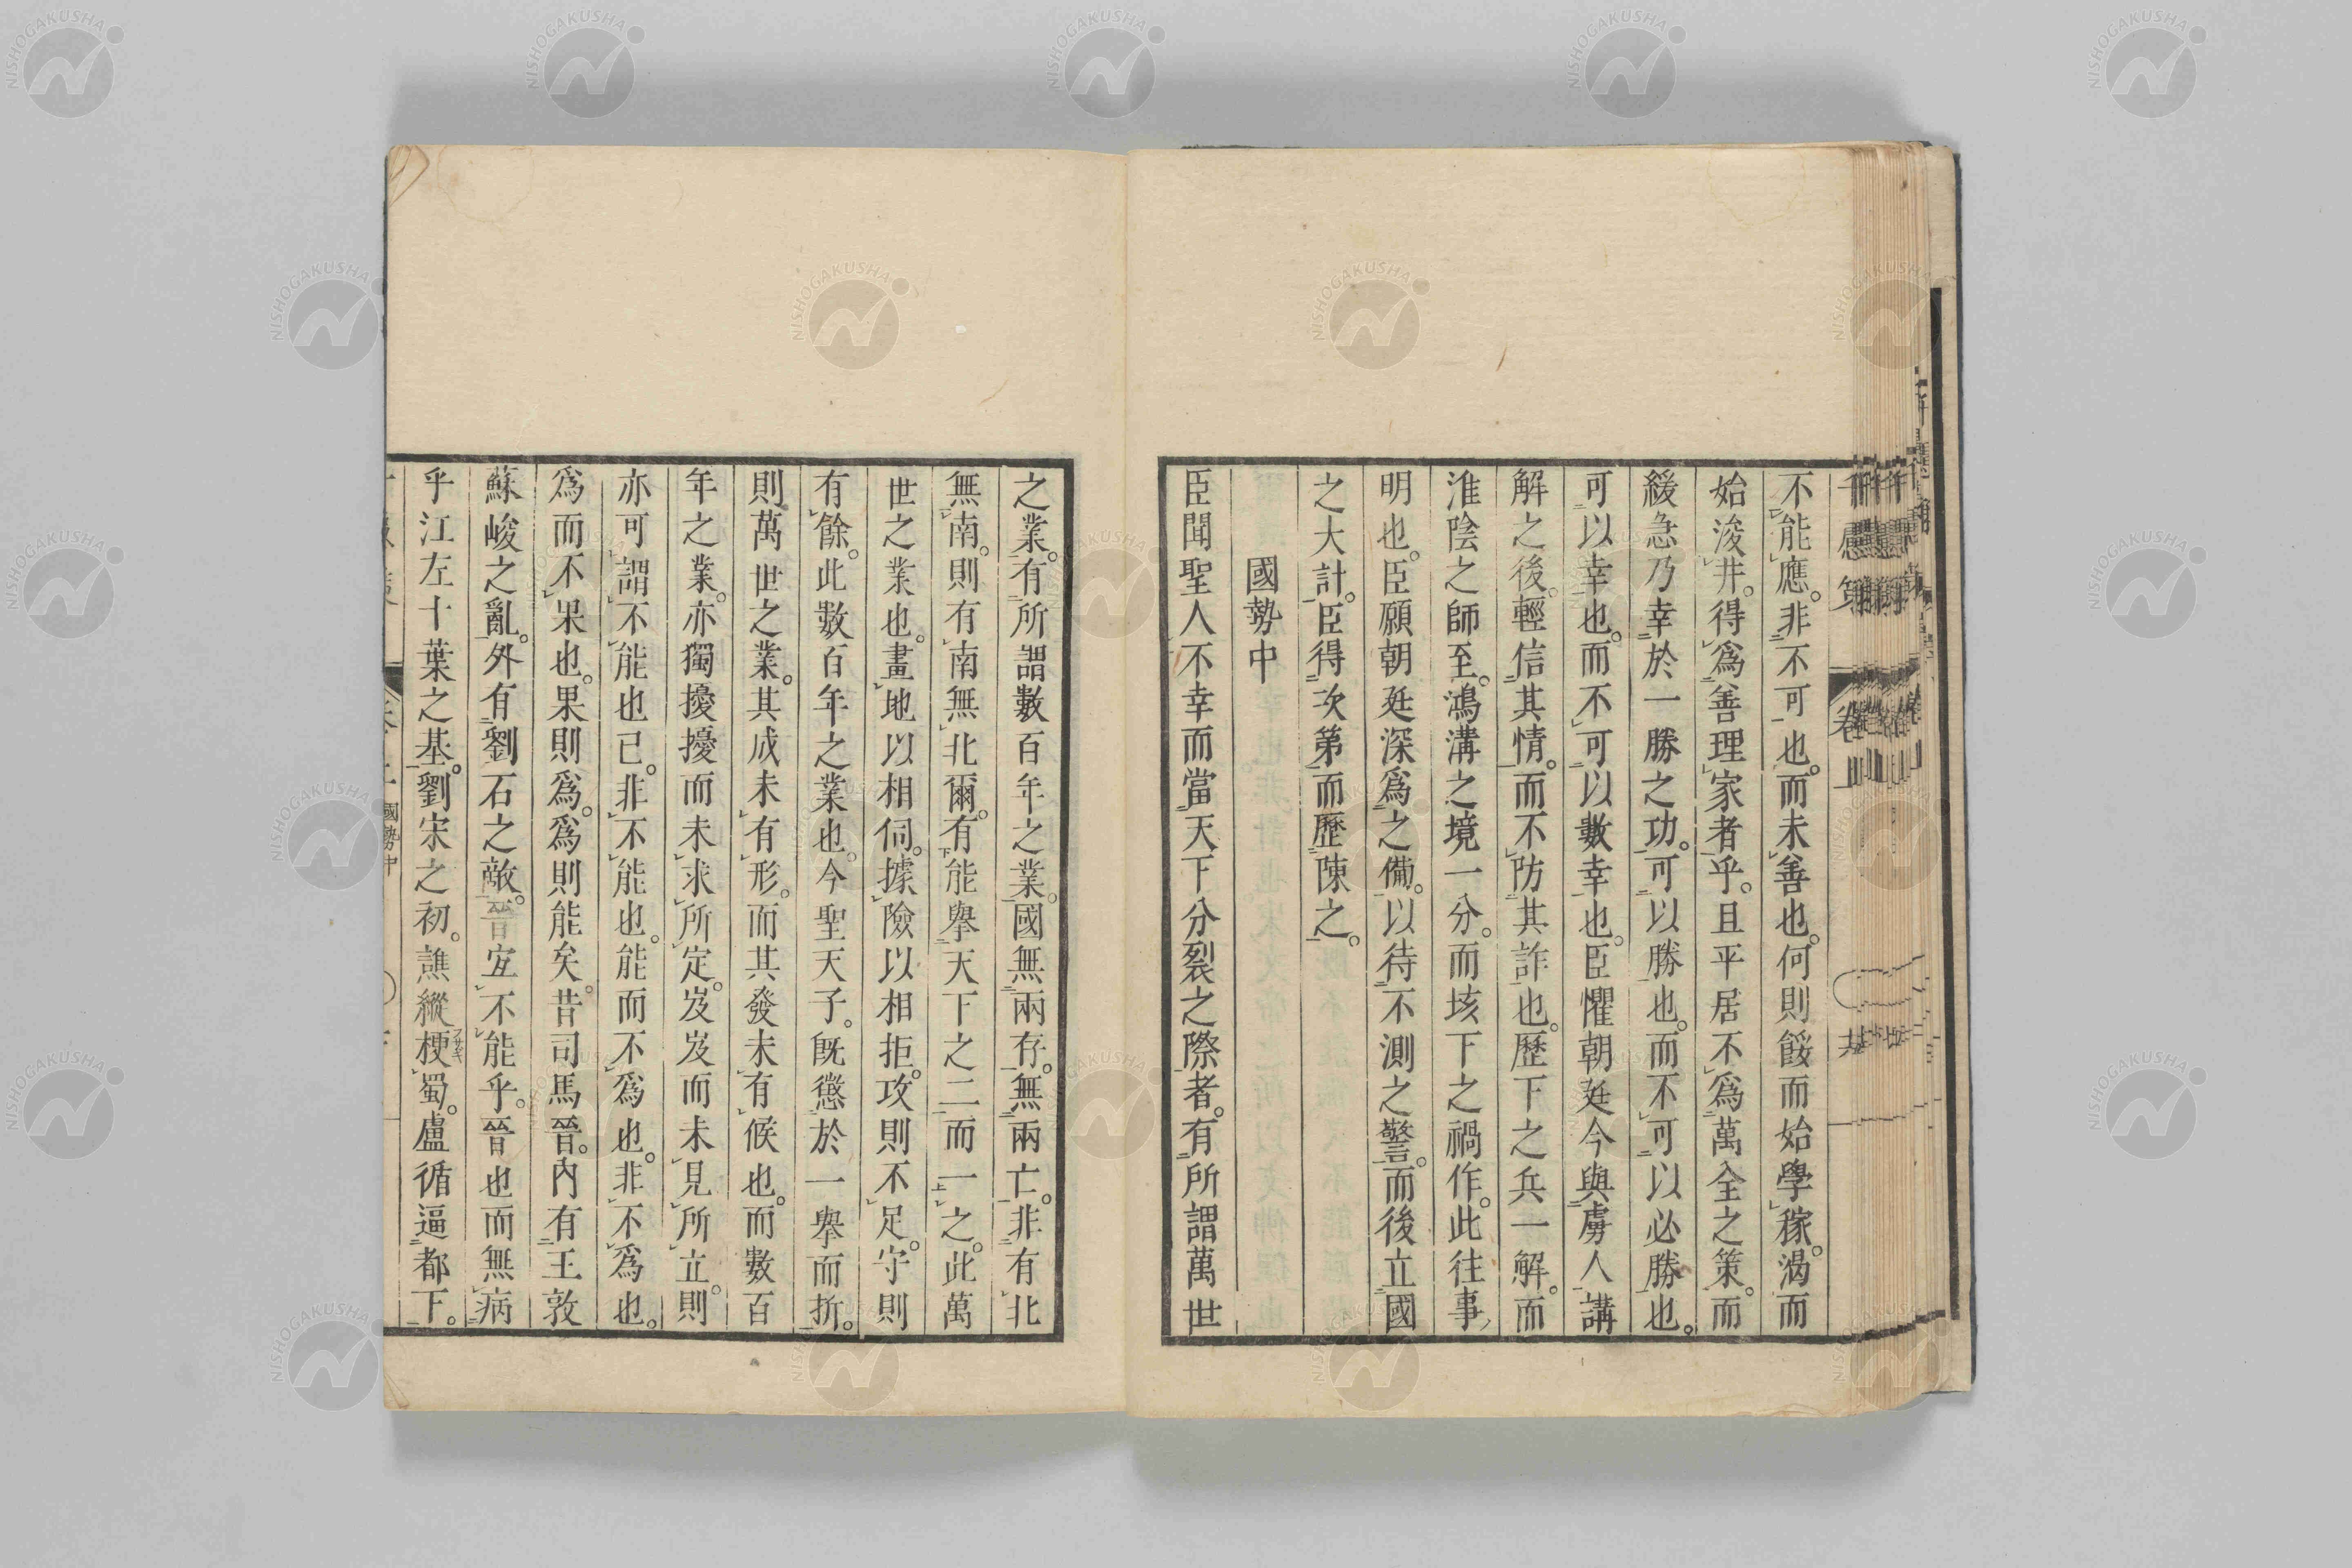 不能應。非不可也。而未善也。何則餒而始學稼。渴而
始浚井。得爲善理家者乎。且平居不爲萬全之策。而
緩急乃幸於一勝之功。可以勝也。而不可以必勝也。
可以幸也。而不可以數幸也。臣懼朝廷今與虜人講
解之後。輕信其情。而不防其詐也。歷下之兵一解。而
淮陰之師至。鴻溝之境一分。而垓下之禍作。此往事
明也。臣願朝廷深爲之備。以待不測之警。而後立國
之大計。臣得次第而歷陳之。
國勢中
臣聞聖人不幸而當天下分裂之際者。有所謂萬世
之業。有所謂數百年之業。國無兩存。無兩亡。非有北
無南。則有南無北爾。有能舉天下之二而一之。此萬
世之業也。畫地以相伺。據險以相拒。攻則不足。守則
有餘。此數百年之業也。今聖天子。旣懲於一舉而折。
則萬世之業。其成未有形。而其發未有候也。而數百
年之業。亦獨擾擾而未求所定。岌岌而未見所立。則
亦可謂不能也已。非不能也。能而不爲也。非不爲也。
爲而不果也。果則爲。爲則能矣。昔司馬晉。內有王敦
蘇峻之亂。外有劉石之敵。晉宐不能乎。晉也而無病
乎江左十葉之基。劉宋之初。譙縱梗蜀。盧循逼都下。
國勢中
NISHOGAKUSHA